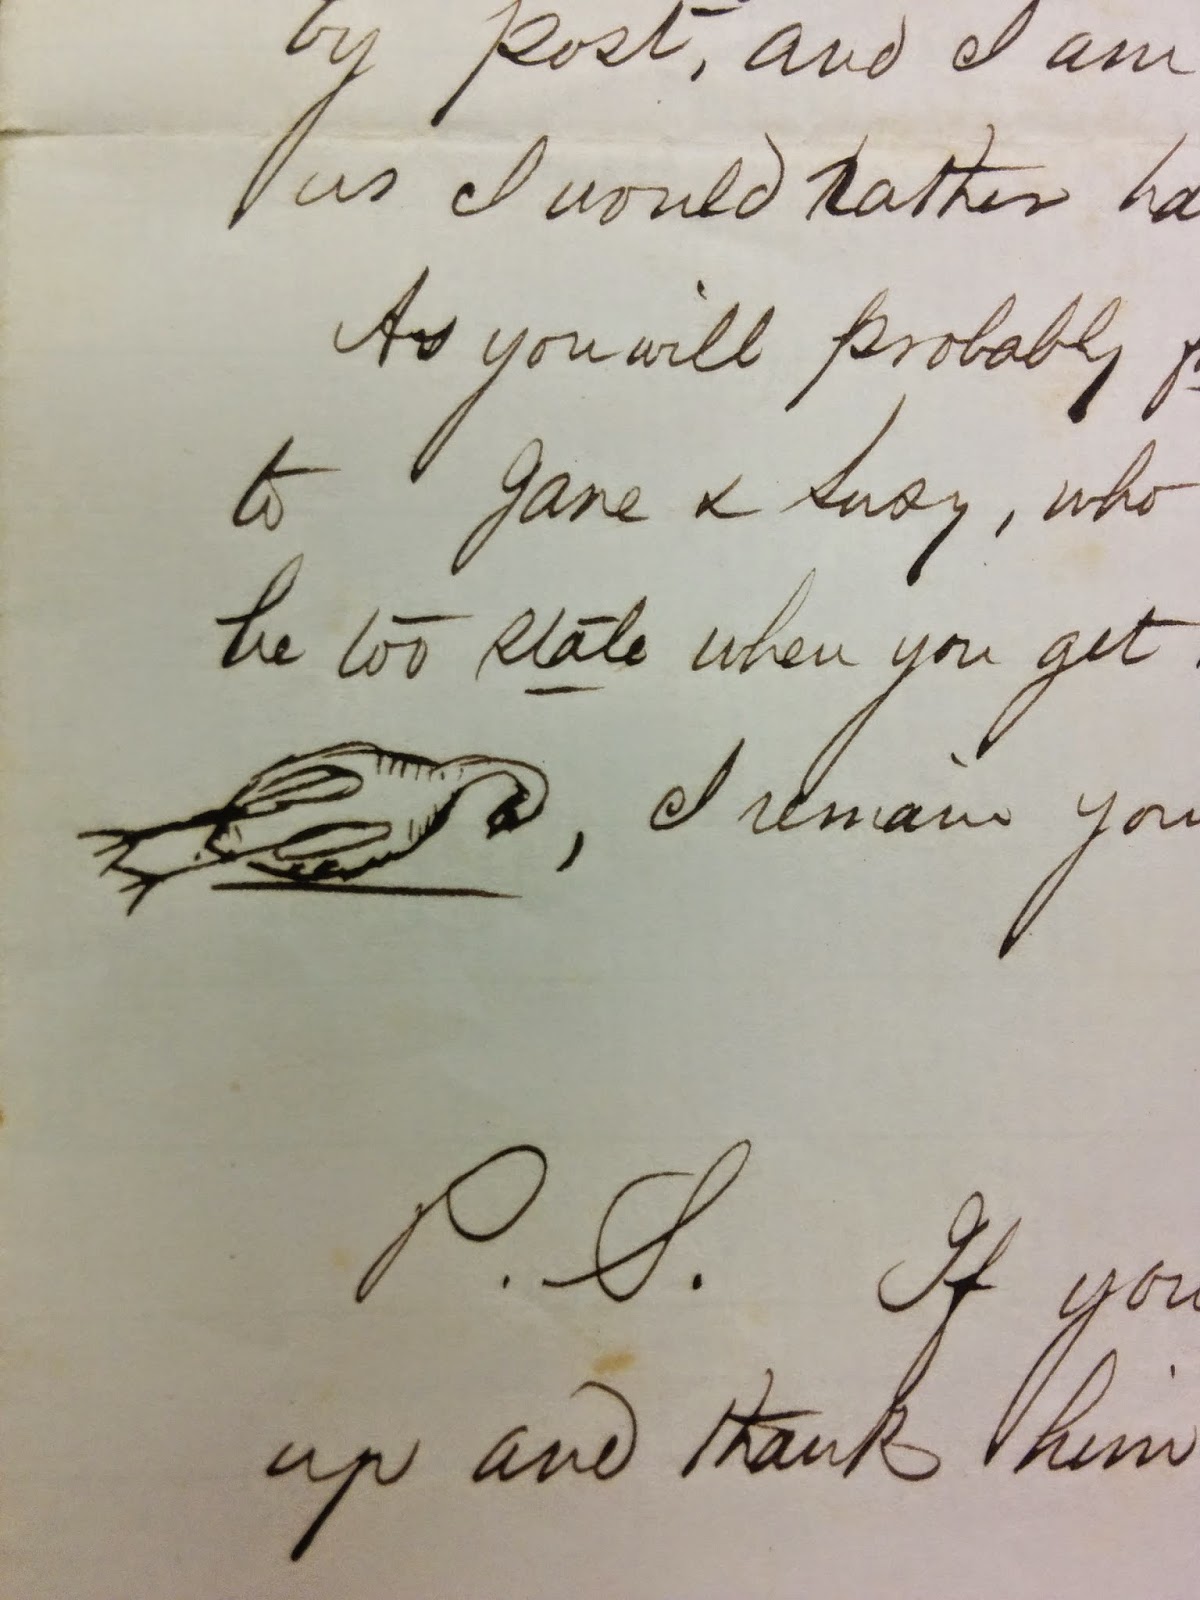 by post, and I am
us I would rather ha
As you will probably
to Jane & Susy, who
be too stale when you get
, I remain you
P. S. If you
up and thank him